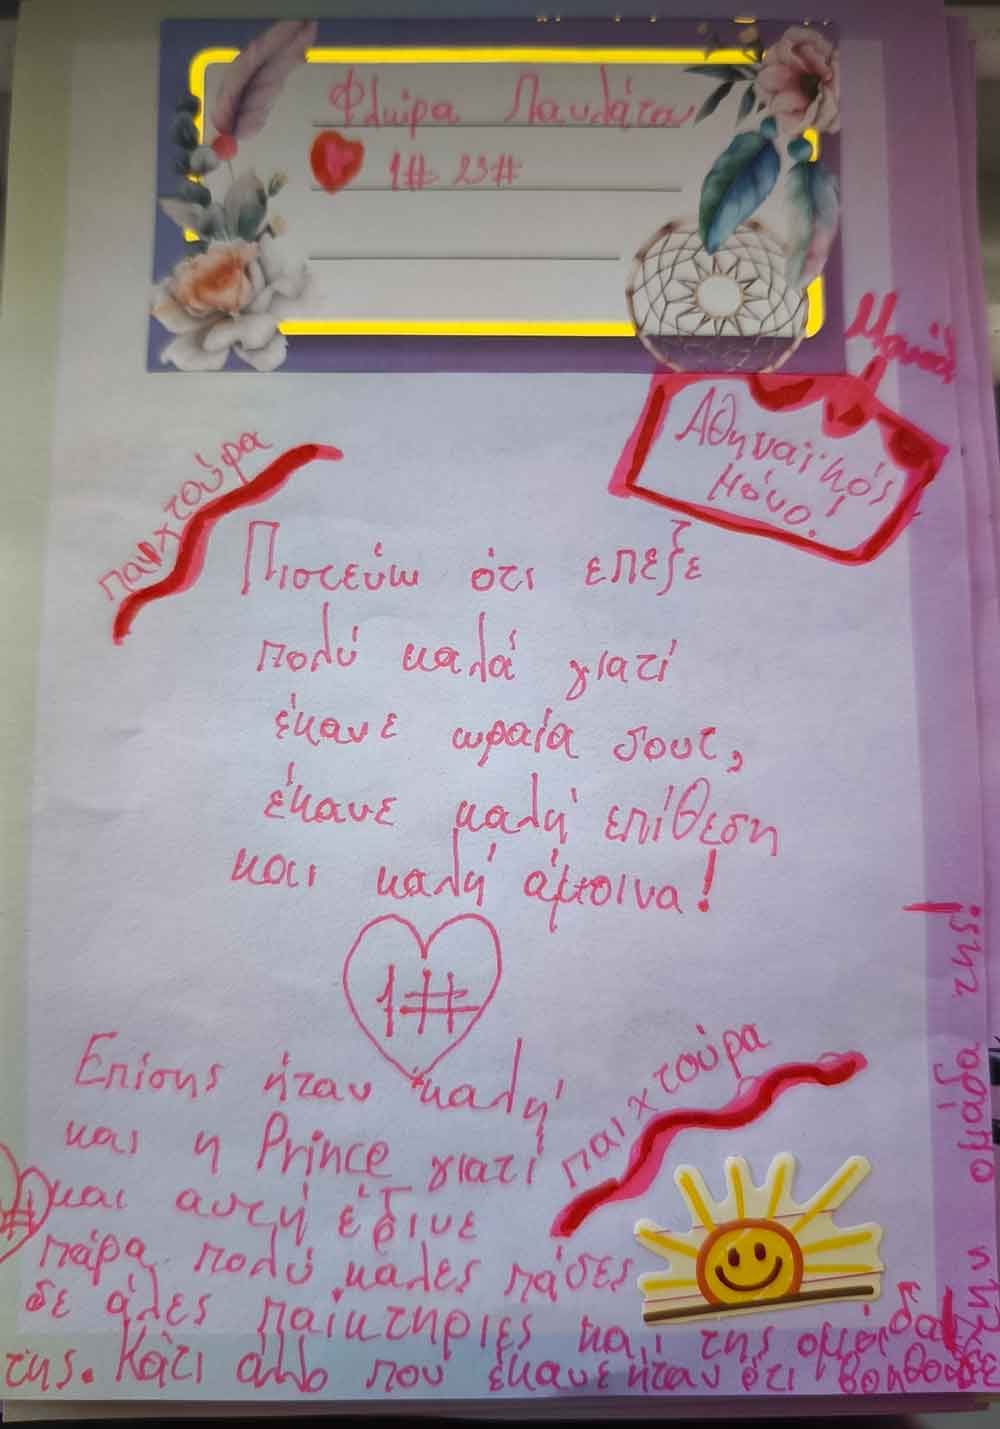 Φλώρα Παυλάτα
1# 23#
Μανιά
Αθηναϊκός
μόνο!
παιχτούρα
Πιστεύω ότι επεξε
πολύ καλά γιατί
έκανε ωραία σουτ,
έκανε καλή επίθεση
και καλή άμοινα!
1#
Επίσης ήταν καλή
και η Prince γιατί
παιχτούρα
και αυτή έδινε
πάρα πολύ καλες πάσες
σε άλες παίκτηριες και της ομάδα
της. Κάτι άλλο που έκανε ήταν ότι βοηθούσε
την ομάδα της!